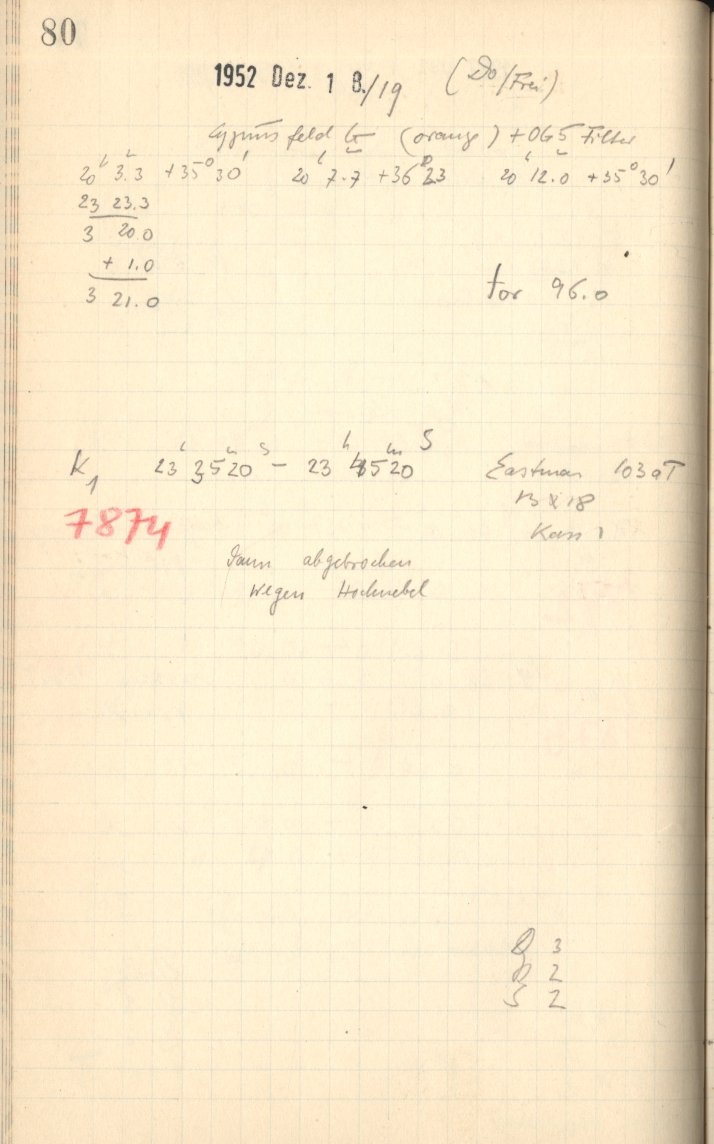 80
1952 Dez. 18./19 (Do/Frei)
Cygnus feld G (orange) + OG5 Filter
20ʰ 3.3 +35° 30' 20ʰ 7.7 +36° 23 20ʰ 12.0 +35° 30'
23 23.3
3 20.0
+ 1.0
3 21.0
for 96.0
K₁ 23ʰ 35ᵐ 20ˢ – 23ʰ 45ᵐ 20ˢ Eastman 103aT
13 x 18
7874
Kass 1
Dann abgebrochen
wegen Hochnebel
3
2
S 2